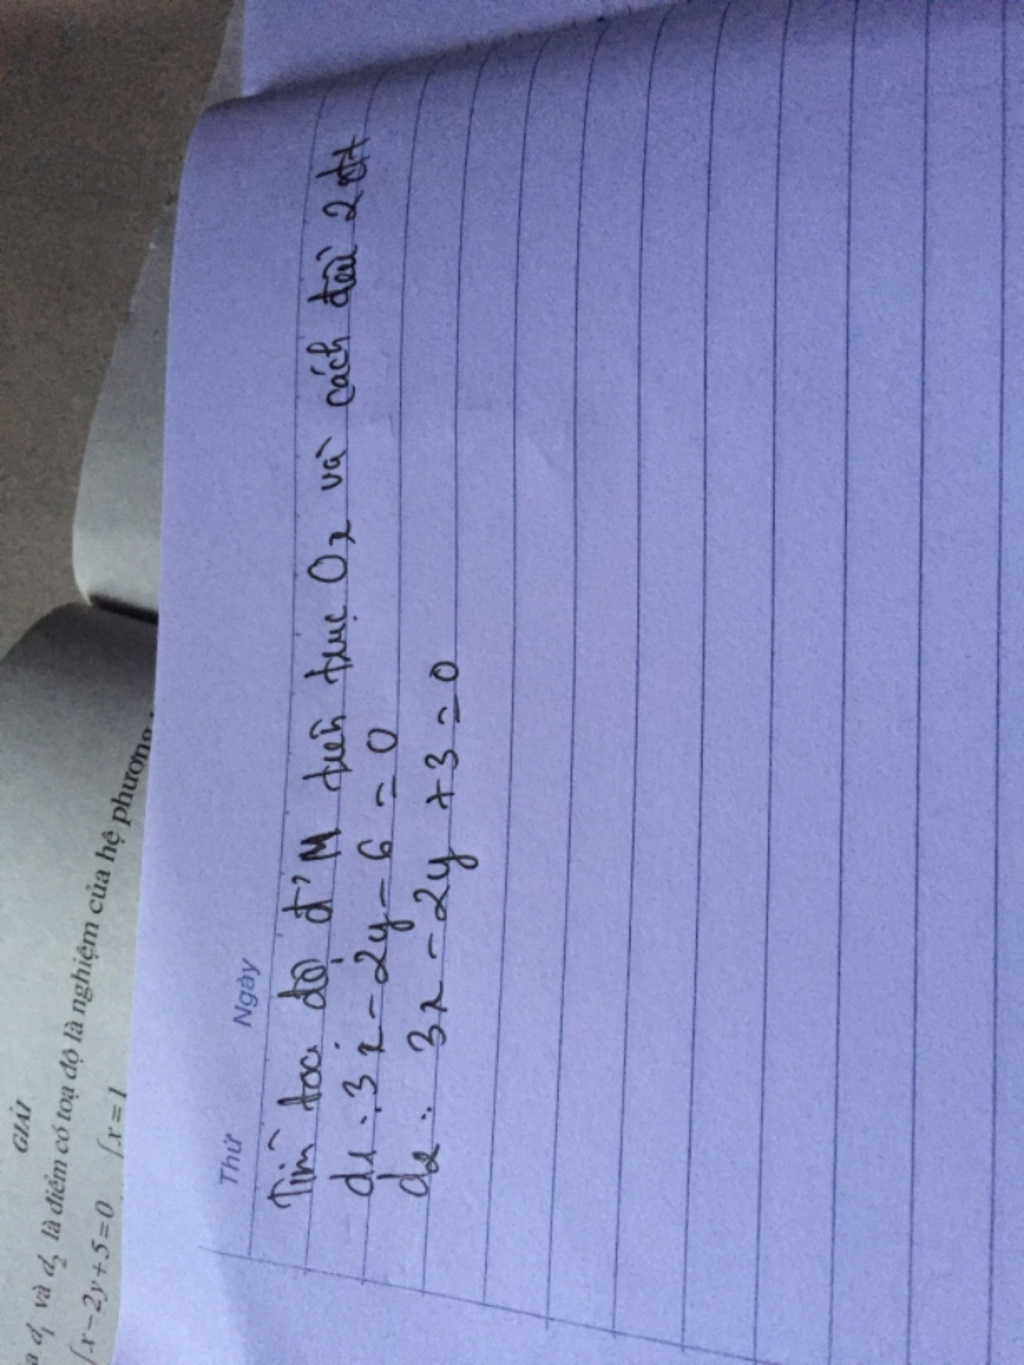 GIẢI
a d₁ và d₂ là điểm có toạ độ là nghiệm của hệ phương
{x-2y+5=0 {x=1
Thứ Ngày
Tìm toạ độ đ' M trên trục Ox và cách đều 2 đt
d1: 3x-2y-6=0
d2: 3x-2y+3=0